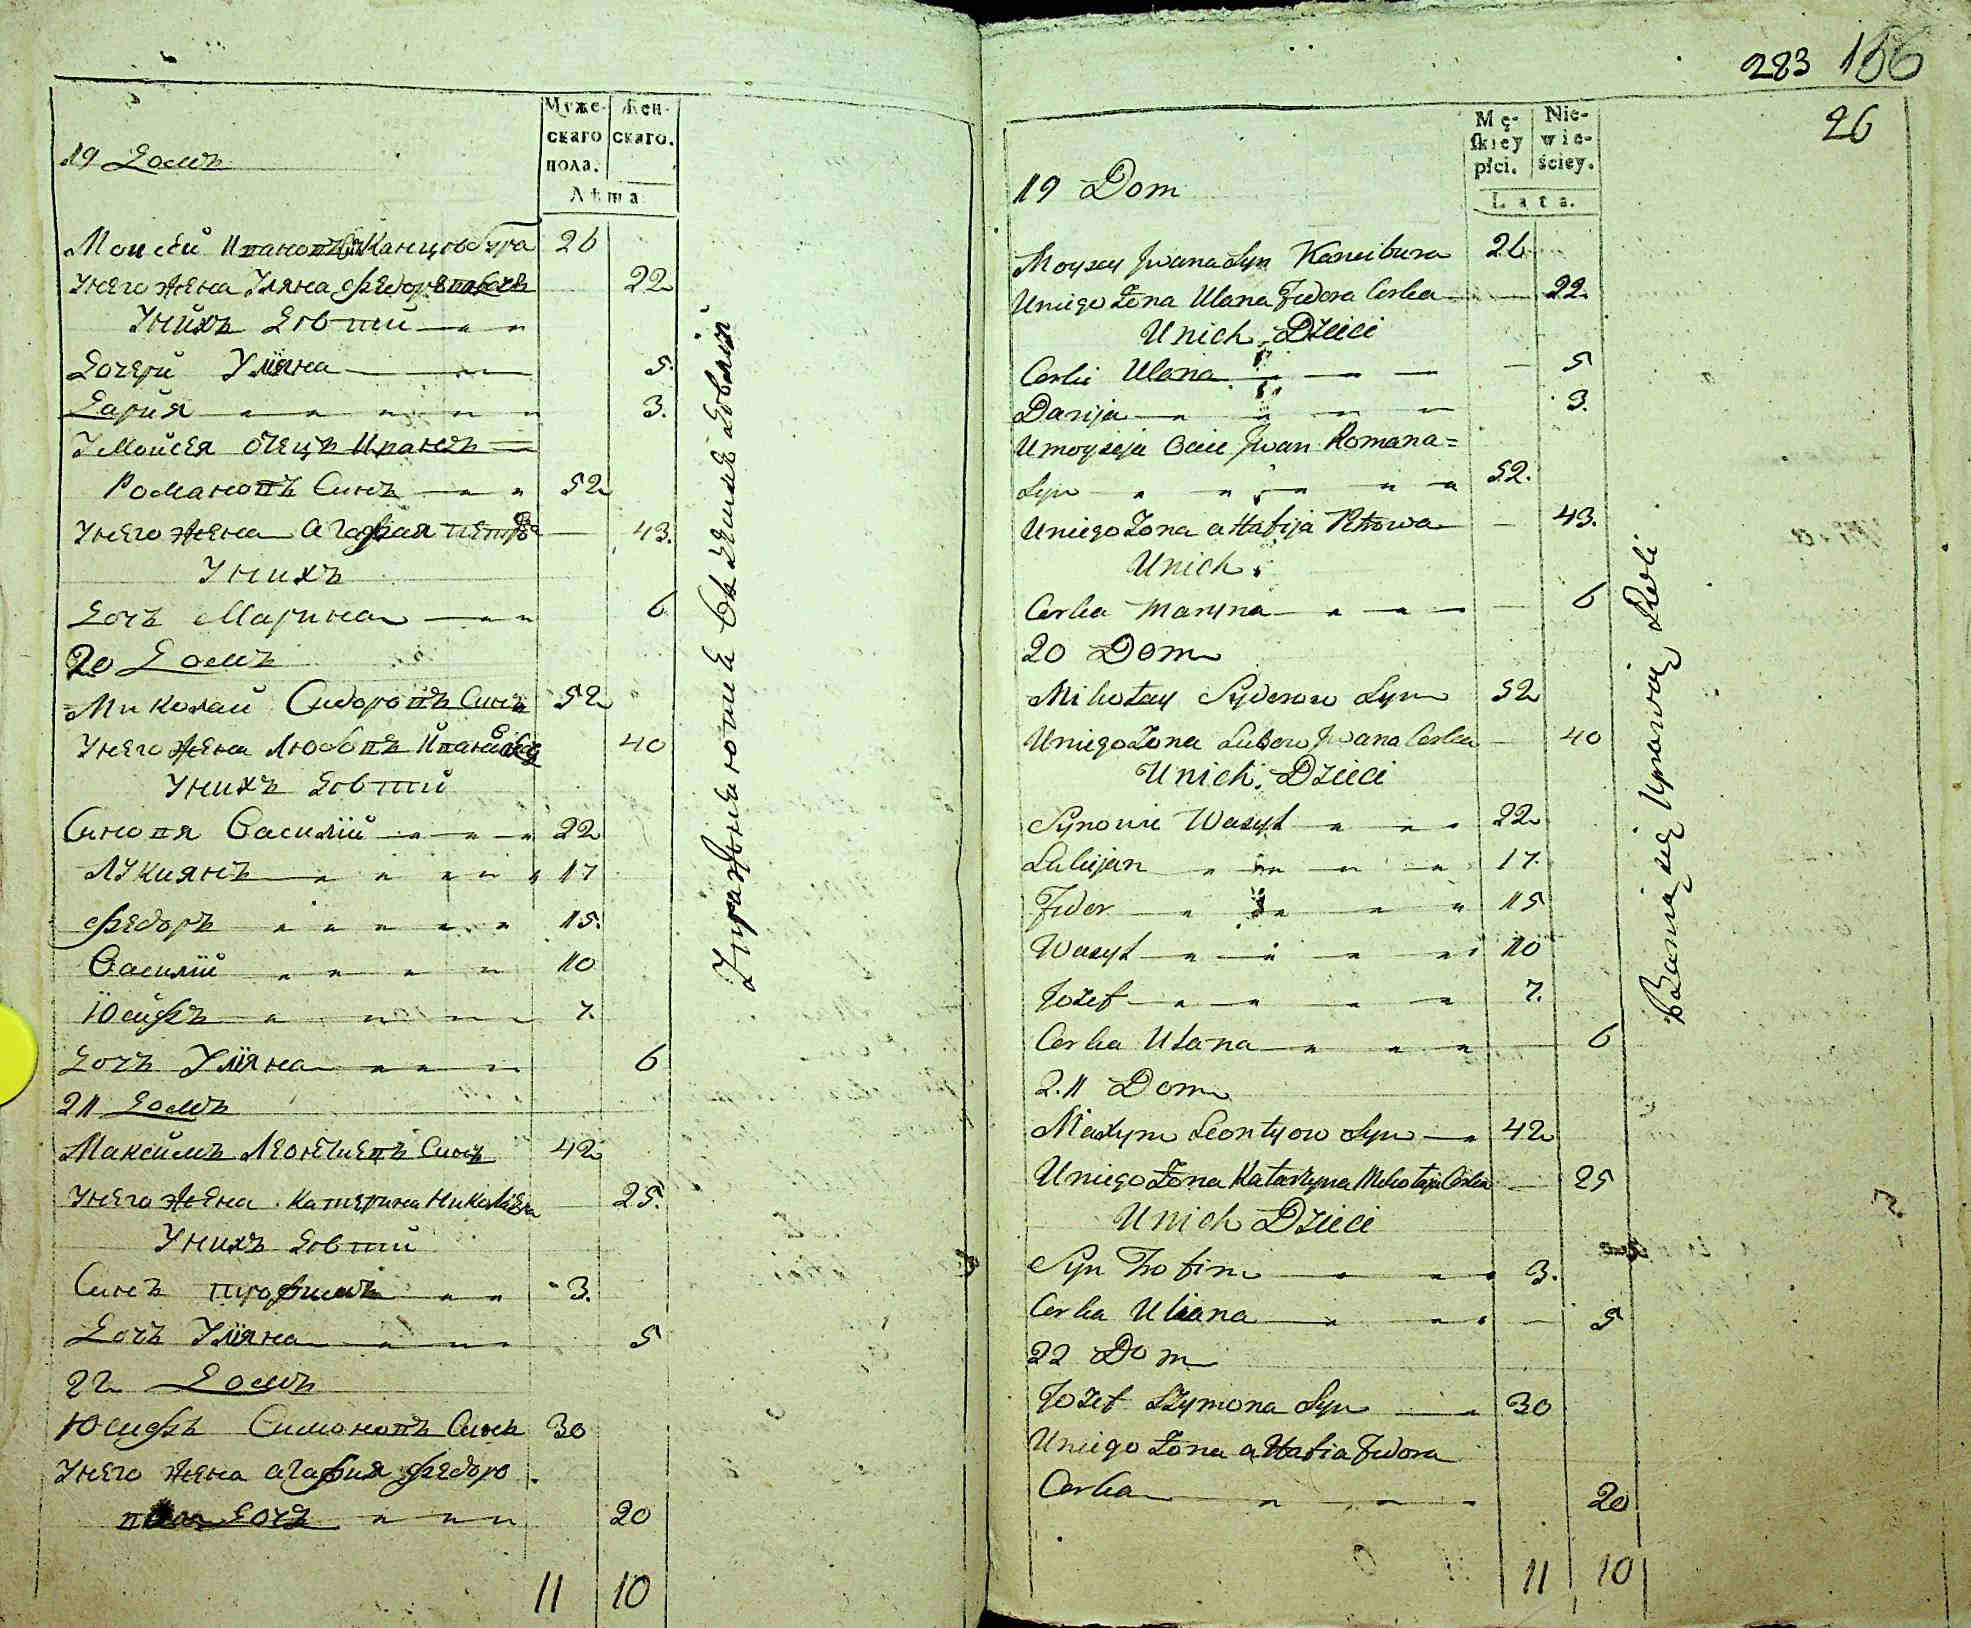 Муже-
скаго
пола.
Жен-
скаго.
Лѣта
19 Домъ
Моисей Ивановъ Канцовбура 26
Унего жена Уляна Федорова 22
Унихъ Дѣти
Дочери Уляна 5.
Дария 3.
У Мойсея отецъ Иванъ
Романовъ Синъ 52
Унего жена Агафия Петрова 43.
Унихъ
Дочъ Марина 6
20 Домъ
Миколай Сидоровъ Синъ 52
Унего жена Любовъ Иванова 40
Унихъ Дѣти
Синовя Василий 22
Лукиянъ 17
Федоръ 15.
Василий 10
Юсифъ 7.
Дочъ Уляна 6
21 Домъ
Максимъ Леонтиевъ Синъ 42
Унего жена Катерина Николаева 25.
Унихъ Дѣти
Синъ Трофимъ 3.
Дочъ Уляна 5
22 Домъ
Юсифъ Симоновъ Синъ 30
Унего жена Агафия Федоро
Дочъ 20
11 10
Упражняются въ земледелии
283 156
26
Mę-
skiey
płci.
Nie-
wie-
ściey.
Lata.
19 Dom
Moysey Jwana Syn Kancibura 26
Uniego Żona Ulana Fedora Corka 22.
Unich Dzieci
Corki Ulana 5
Darija 3.
Umoyseja Ociec Jwan Romana=
Syn 52.
Uniego Żona aHafija Petrowa 43.
Unich
Corka Maryna 6
20 Dom
Mikołay Syderow Syn 52
Uniego Żona Lubow Jwana Corka 40
Unich Dzieci
Synowie Wasyl 22
Lukijan 17.
Fedor 15
Wasyl 10
Jozef 7.
Corka Ulana 6
21 Dom
Maxym Leontyow Syn 42
Uniego Żona Katarzyna Mikołaja Corka 25
Unich Dzieci
Syn Trofim 3.
Corka Uliana 5
22 Dom
Jozef Szymona Syn 30
Uniego Żona aHafia Fedora
Corka 20
11 10
Bawią się Uprawią Roli